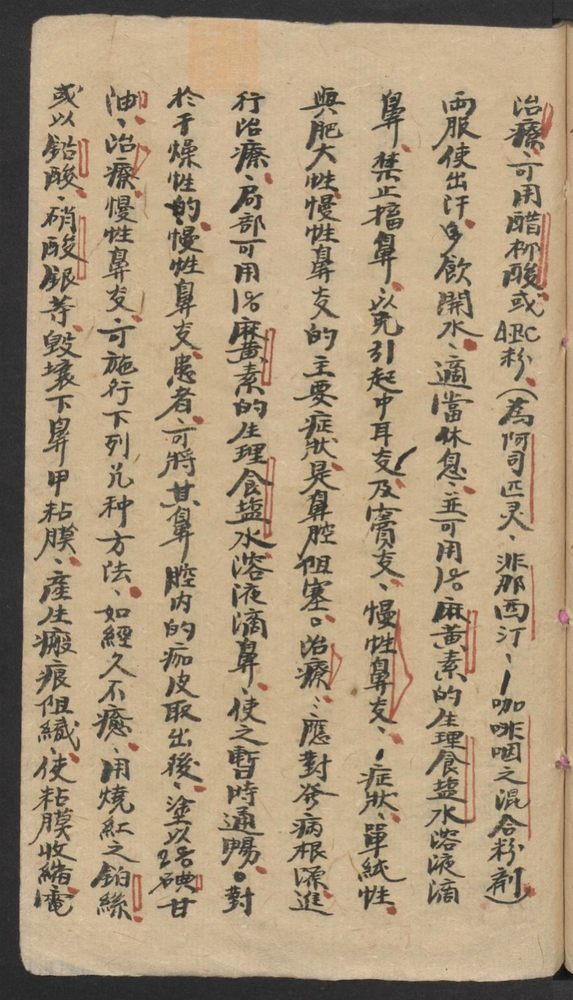 治療、可用醋柳酸或ABC粉、(為阿司匹灵、非那西汀、咖啡因之混合粉剤)
両服使出汗、多飲開水、適當休息、並可用1%麻黃素的生理食盐水溶液滴
鼻、禁止擤鼻、以免引起中耳炎及竇炎、慢性鼻炎、症狀、單純性
與肥大性慢性鼻炎的主要症狀是鼻腔阻塞。治療:應對於病根源進
行治療、局部可用1%麻黃素的生理食盐水溶液滴鼻、使之暫時通暢。對
於干燥性的慢性鼻炎患者、可將其鼻腔内的痂皮取出後、塗以2%碘甘
油、治療慢性鼻炎、可施行下列几种方法、如經久不癒、用燒紅之鉑絲
或以鉻酸、硝酸銀等、毀壞下鼻甲粘膜、產生瘢痕阻織、使粘膜收縮